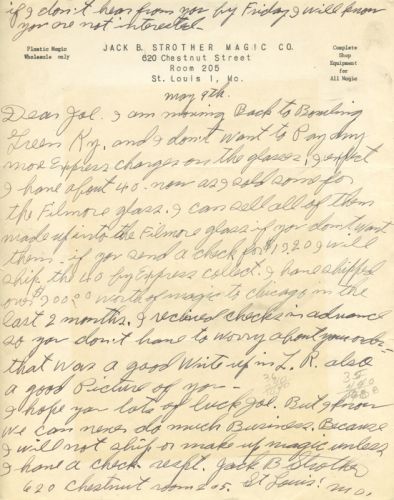 if I don't hear from you by Friday I will know
you are not interested.
Plastic Magic
Wholesale only
JACK B. STROTHER MAGIC CO.
620 Chestnut Street
Room 205
St. Louis 1, Mo.
Complete
Shop
Equipment
for
All Magic
May 9th.
Dear Joe. I am moving Back to Bowling
Green Ky. and I don't want to Pay any
more Express charges on the glasses. I expect
I have about 40. now as I sold some for
the Filmore glass. I can sell all of them
made up into the Filmore glass if you don't want
them. if you send a check for $13.20 I will
ship the 40 by Express collect. I have shipped
over $700.00 worth of magic to chicago in the
last 2 months. I recived checks in advance
so you don't have to worry about your order
that was a good Write up in L. R. also
a good Picture of you -
I hope you lots of luck Joe. But I know
we can never do much Business. Because
I will not ship or make up magic unless
I have a check. respt. Jack B Strother
620 chestnut room 205. St Louis. Mo.